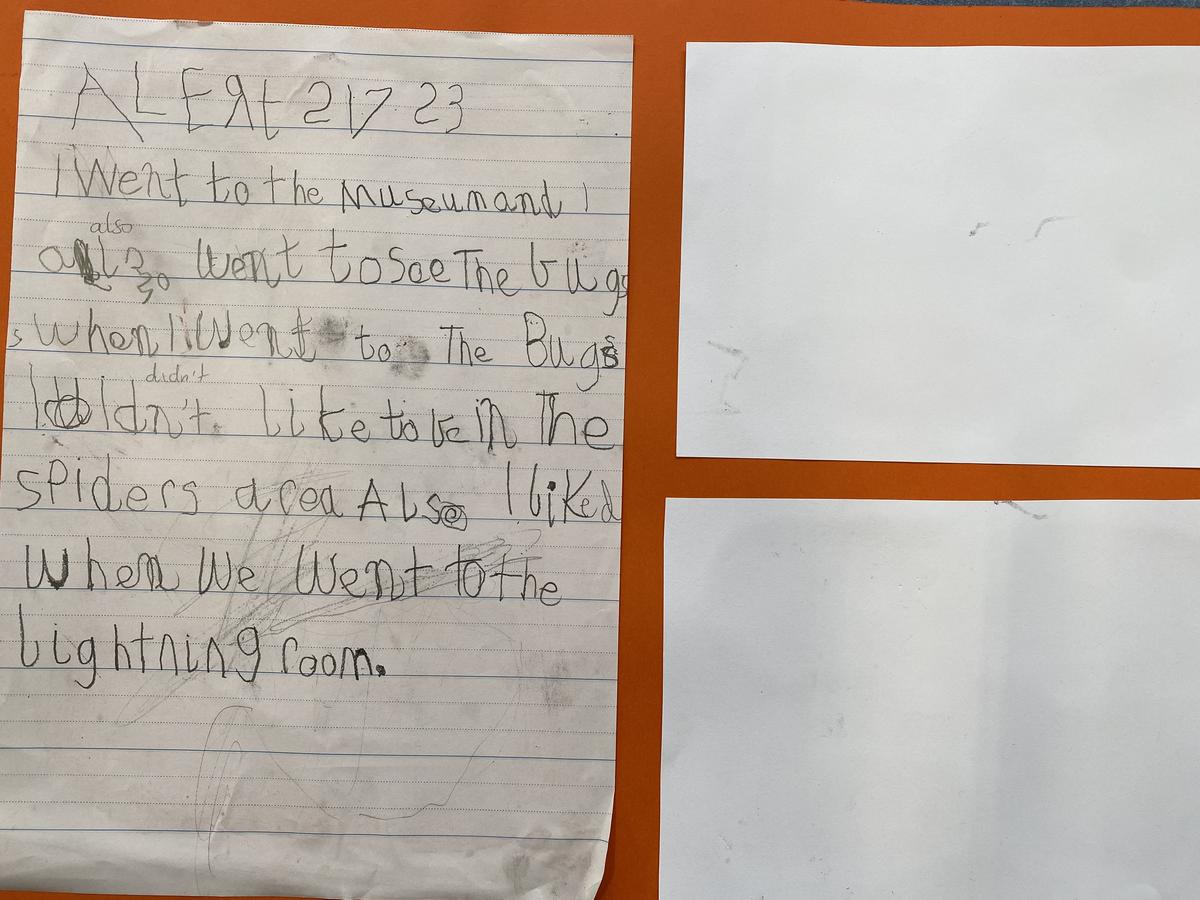 ALERt 217 23
I Went to the Museum and I
also
Went to See The bugs
s when I Went to The Bugs
didn't
I ldn't like to be in The
spiders area Also I liked
When We Went to the
lightning room.